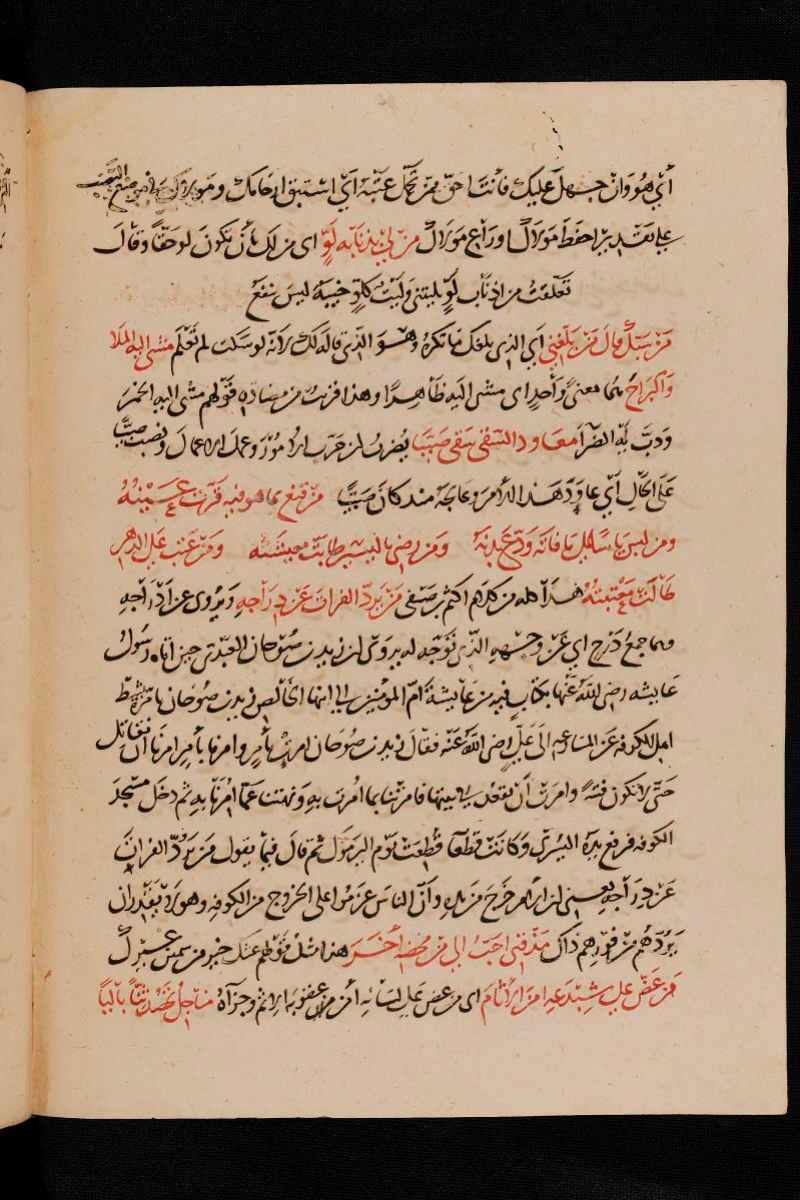 أي هو وان جهل عليك فأنت احق من تحمل عنه اي استبق ارحامك ومولاك
على تقدير احفظ مولاك او راع مولاك من لي بذنابه لو اي من لك بأن تكون لو حقا وقال
تعلقت من اذناب لو بليتني وليت كلو خيبة ليس تنفع
من سبك قال من بلغني أي الذي بلغك ما تكره وهو الذي قاله لك لانه لو سكت لم تعلم مشى اليه الملا
والبراح هما بمعنى واحد اي مشى اليه ظاهرا وهذا قريب من مضاده قولهم مشى اليه الخمر
ودب له الضراء معاود السقي سقى صبيا يضرب لمن جرب الامور وعمل الاعمال ونصب صبيا
على الحال اي عاود هذا الامر وعالجه منذ كان صبيا من قنع بما هو فيه قرت عينه
ومن لم يأس على ما فاته ودع بدنه ومن رضي باليسير طابت معيشته ومن عتب على الدهر
طالت معتبته هذا كله من كلام اكثم بن صيفي من يرد الفرات عن دراجه ويروى عن ادراجه
وهما جمع درج اي عن وجهه الذي توجه له يروى لزيد بن صوحان العبدي حين اتاه رسول
عايشه رضى الله عنها بكتاب فيه من عايشة ام المؤمنين الى ابنها الخالص زيد بن صوحان تأمره بتثبيط
اهل الكوفه عن المسارعه الى علي رضى الله عنه فقال زيد بن صوحان امرت بأمر وامرنا بأمر امرنا ان نقاتل
حتى لا تكون فتنة وامرت أن تقعد في بيتها فامرتنا بما امرت به ونهتنا عما امرنا به ثم دخل مسجد
الكوفه فرفع يده اليسرى وكانت قطعا قطعت يوم اليرموك ثم قال فيما يقول من يرد الفرات
عن دراجه يعني ان الامر خرج من يده وأن الناس عزموا على الخروج من الكوفه وهو لا يقدر ان
يردهم من فورهم ذاك مذقتي احب الي من محضه اخر هذا مثل قولهم غثك خير من سمين غيرك
من عض على شبدعه امن الاثام اي من عض على لسانه امن من عقوبة الاثم وجزاه مناجل تحصد ثنا باليا